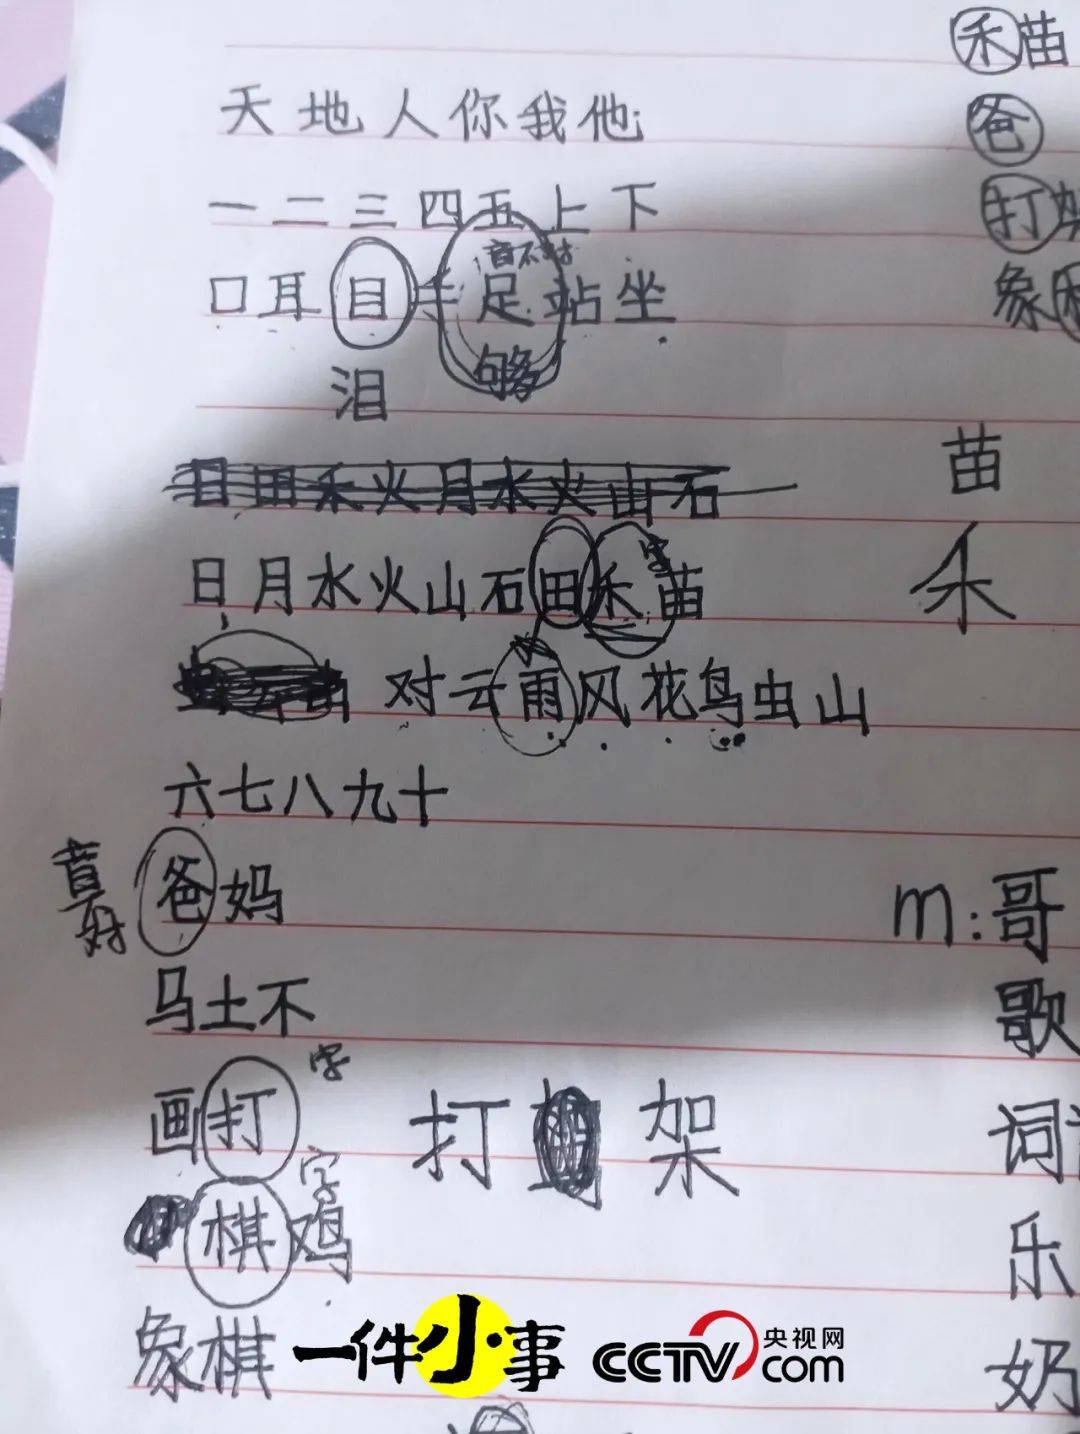 禾苗
天地人你我他
爸
一二三四五上下
打架
音不对
口耳目手足站坐
象
够
泪
苗
日田禾火月水火山石
禾
字
日月水火山石田禾苗
对云雨风花鸟虫山
六七八九十
爸妈
m:哥
马土不
歌
字
画打 打 架
词
字
棋鸡
乐
象棋
一件小事
CCTV.com 央视网
奶